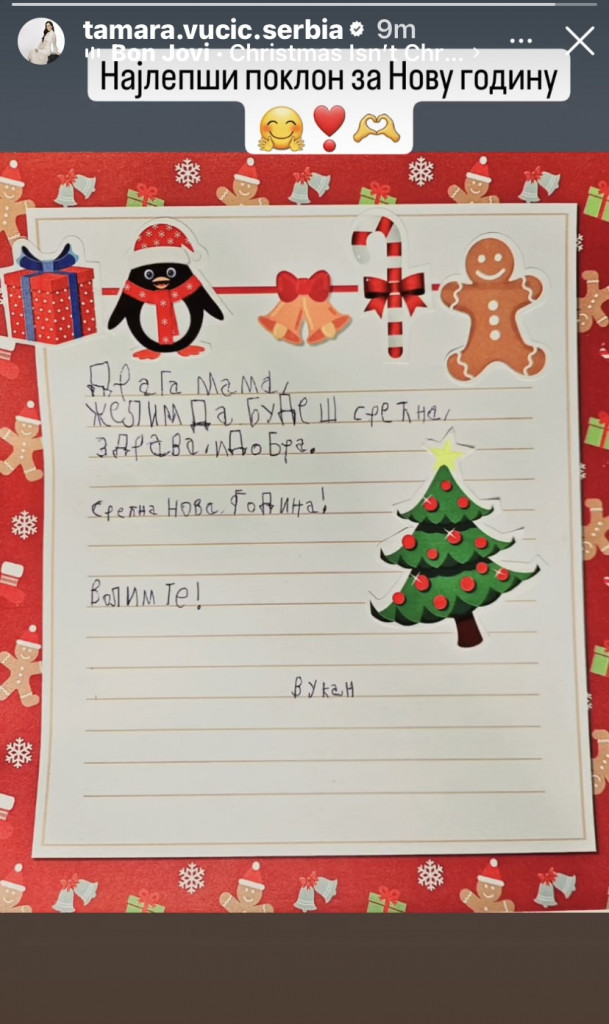 tamara.vucic.serbia 9m
Bon Jovi · Christmas Isn't Chr... >
Најлепши поклон за Нову годину
🤗❣️🫶
Драга мама,
желим да будеш срећна,
здрава, и добра.
Срећна Нова Година!
Волим те!
Вукан